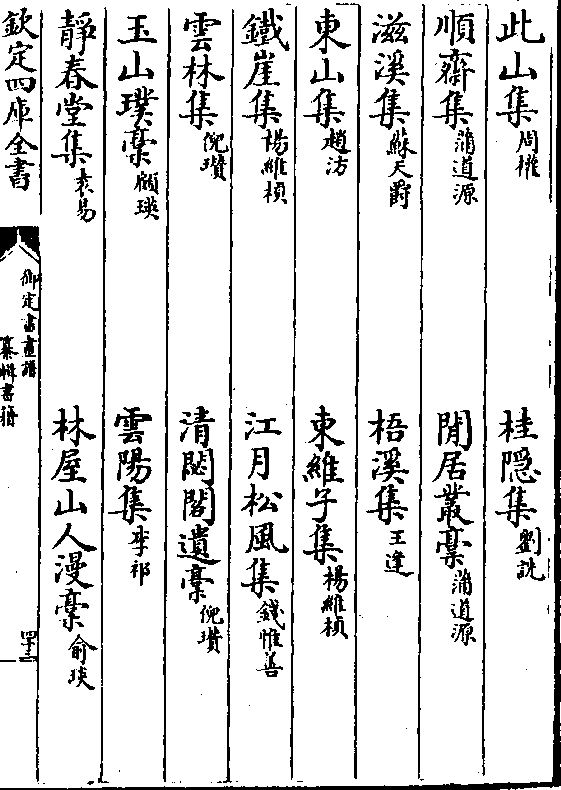 此山集 周權 桂隠集 劉詵
順齋集 蒲道源 閒居叢稾 蒲道源
滋溪集 蘇天爵 梧溪集 王逢
東山集 趙汸 東維子集 楊維楨
鐵崖集 楊維楨 江月松風集 錢惟善
雲林集 倪瓚 清閟閣遺稾 倪瓚
玉山璞稾 顧瑛 雲陽集 李祁
靜春堂集 袁易 林屋山人漫稾 俞琰
欽定四庫全書
御定書畫譜
纂輯書籍